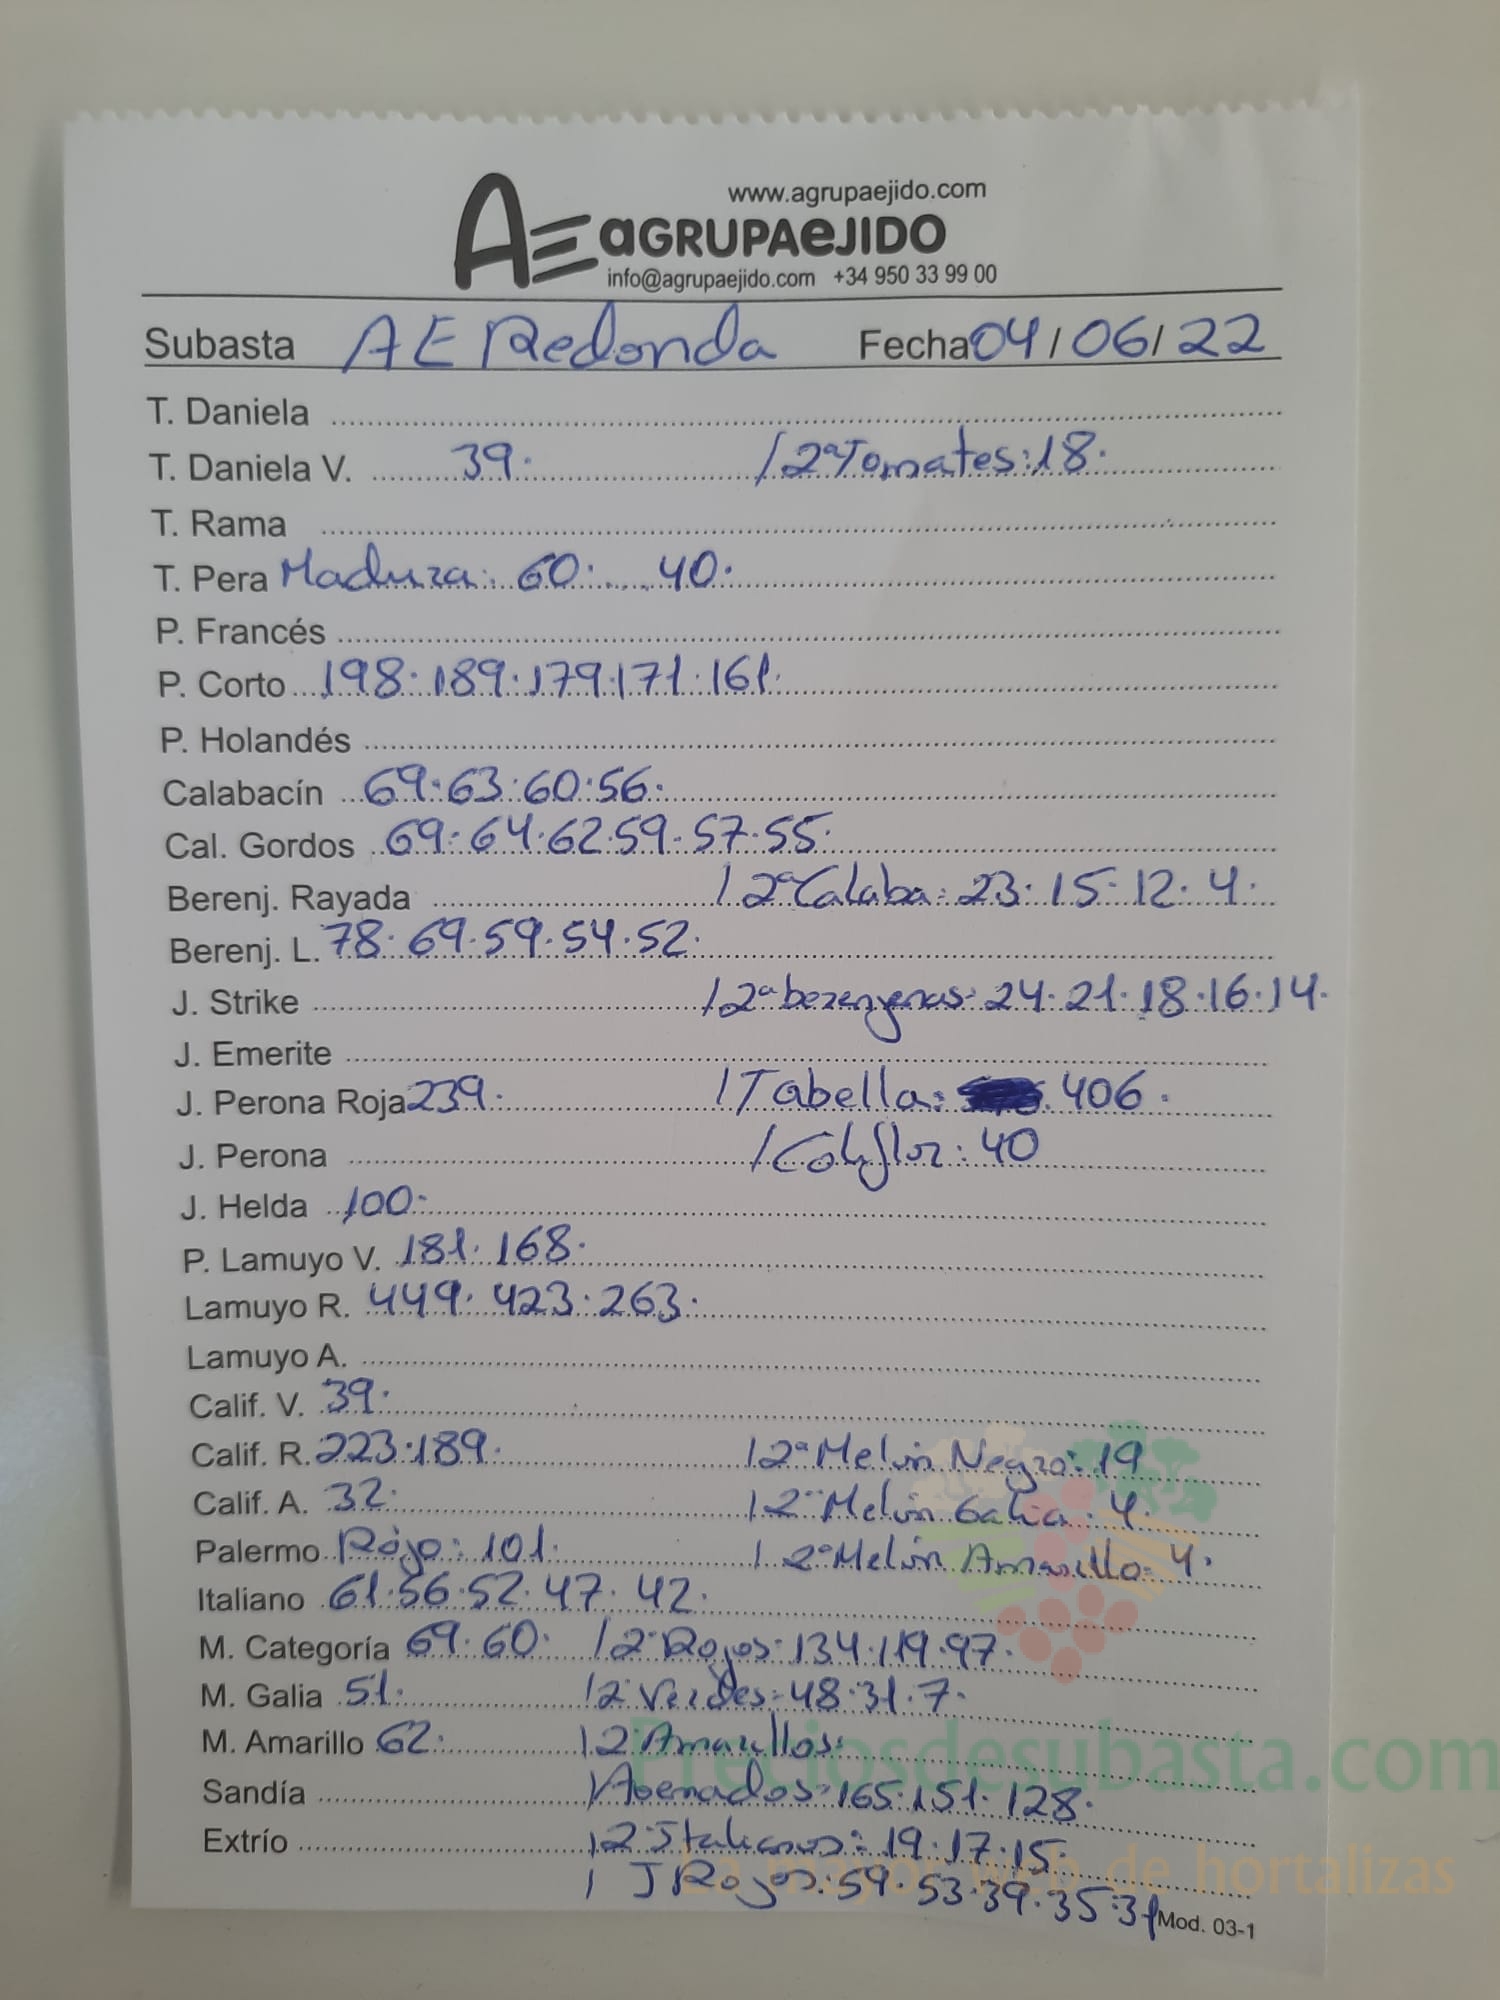 www.agrupaejido.com
AE aGRUPAeJIDO
info@agrupaejido.com +34 950 33 99 00
Subasta AE Redonda Fecha 04/06/22
T. Daniela
T. Daniela V. 39. / 2ª Tomates: 18.
T. Rama
T. Pera Madura: 60. 40.
P. Francés
P. Corto 198. 189. 179. 171. 161.
P. Holandés
Calabacín 69. 63. 60. 56.
Cal. Gordos 69. 64. 62. 59. 57. 55.
Berenj. Rayada / 2ª Calaba: 23. 15. 12. 4.
Berenj. L. 78. 69. 59. 54. 52.
J. Strike / 2ª berenjenas: 24. 21. 18. 16. 14.
J. Emerite
J. Perona Roja 239. / Tabella: 406.
J. Perona / Coliflor: 40
J. Helda 100.
P. Lamuyo V. 181. 168.
Lamuyo R. 449. 423. 263.
Lamuyo A.
Calif. V. 39.
Calif. R. 223. 189. / 2ª Melón Negro: 19
Calif. A. 32. / 2ª Melón Galia: 4.
Palermo Rojo: 101. / 2ª Melón Amarillo: 4.
Italiano 61. 56. 52. 47. 42.
M. Categoría 69. 60. / 2ª Rojos: 134. 119. 97.
M. Galia 51. / 2ª Verdes: 48. 31. 7.
M. Amarillo 62. / 2 Amarillos:
Preciosdesubasta.com
Sandía / Asenados: 165. 151. 128.
Extrío / 2ª Italianos: 19. 17. 15
La mayor web de hortalizas
/ J Rojos: 59. 53. 39. 35. 31
Mod. 03-1